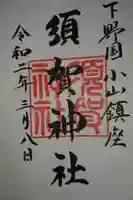 下野国小山鎮座
須賀神社
令和二年三月八日
須賀
神社